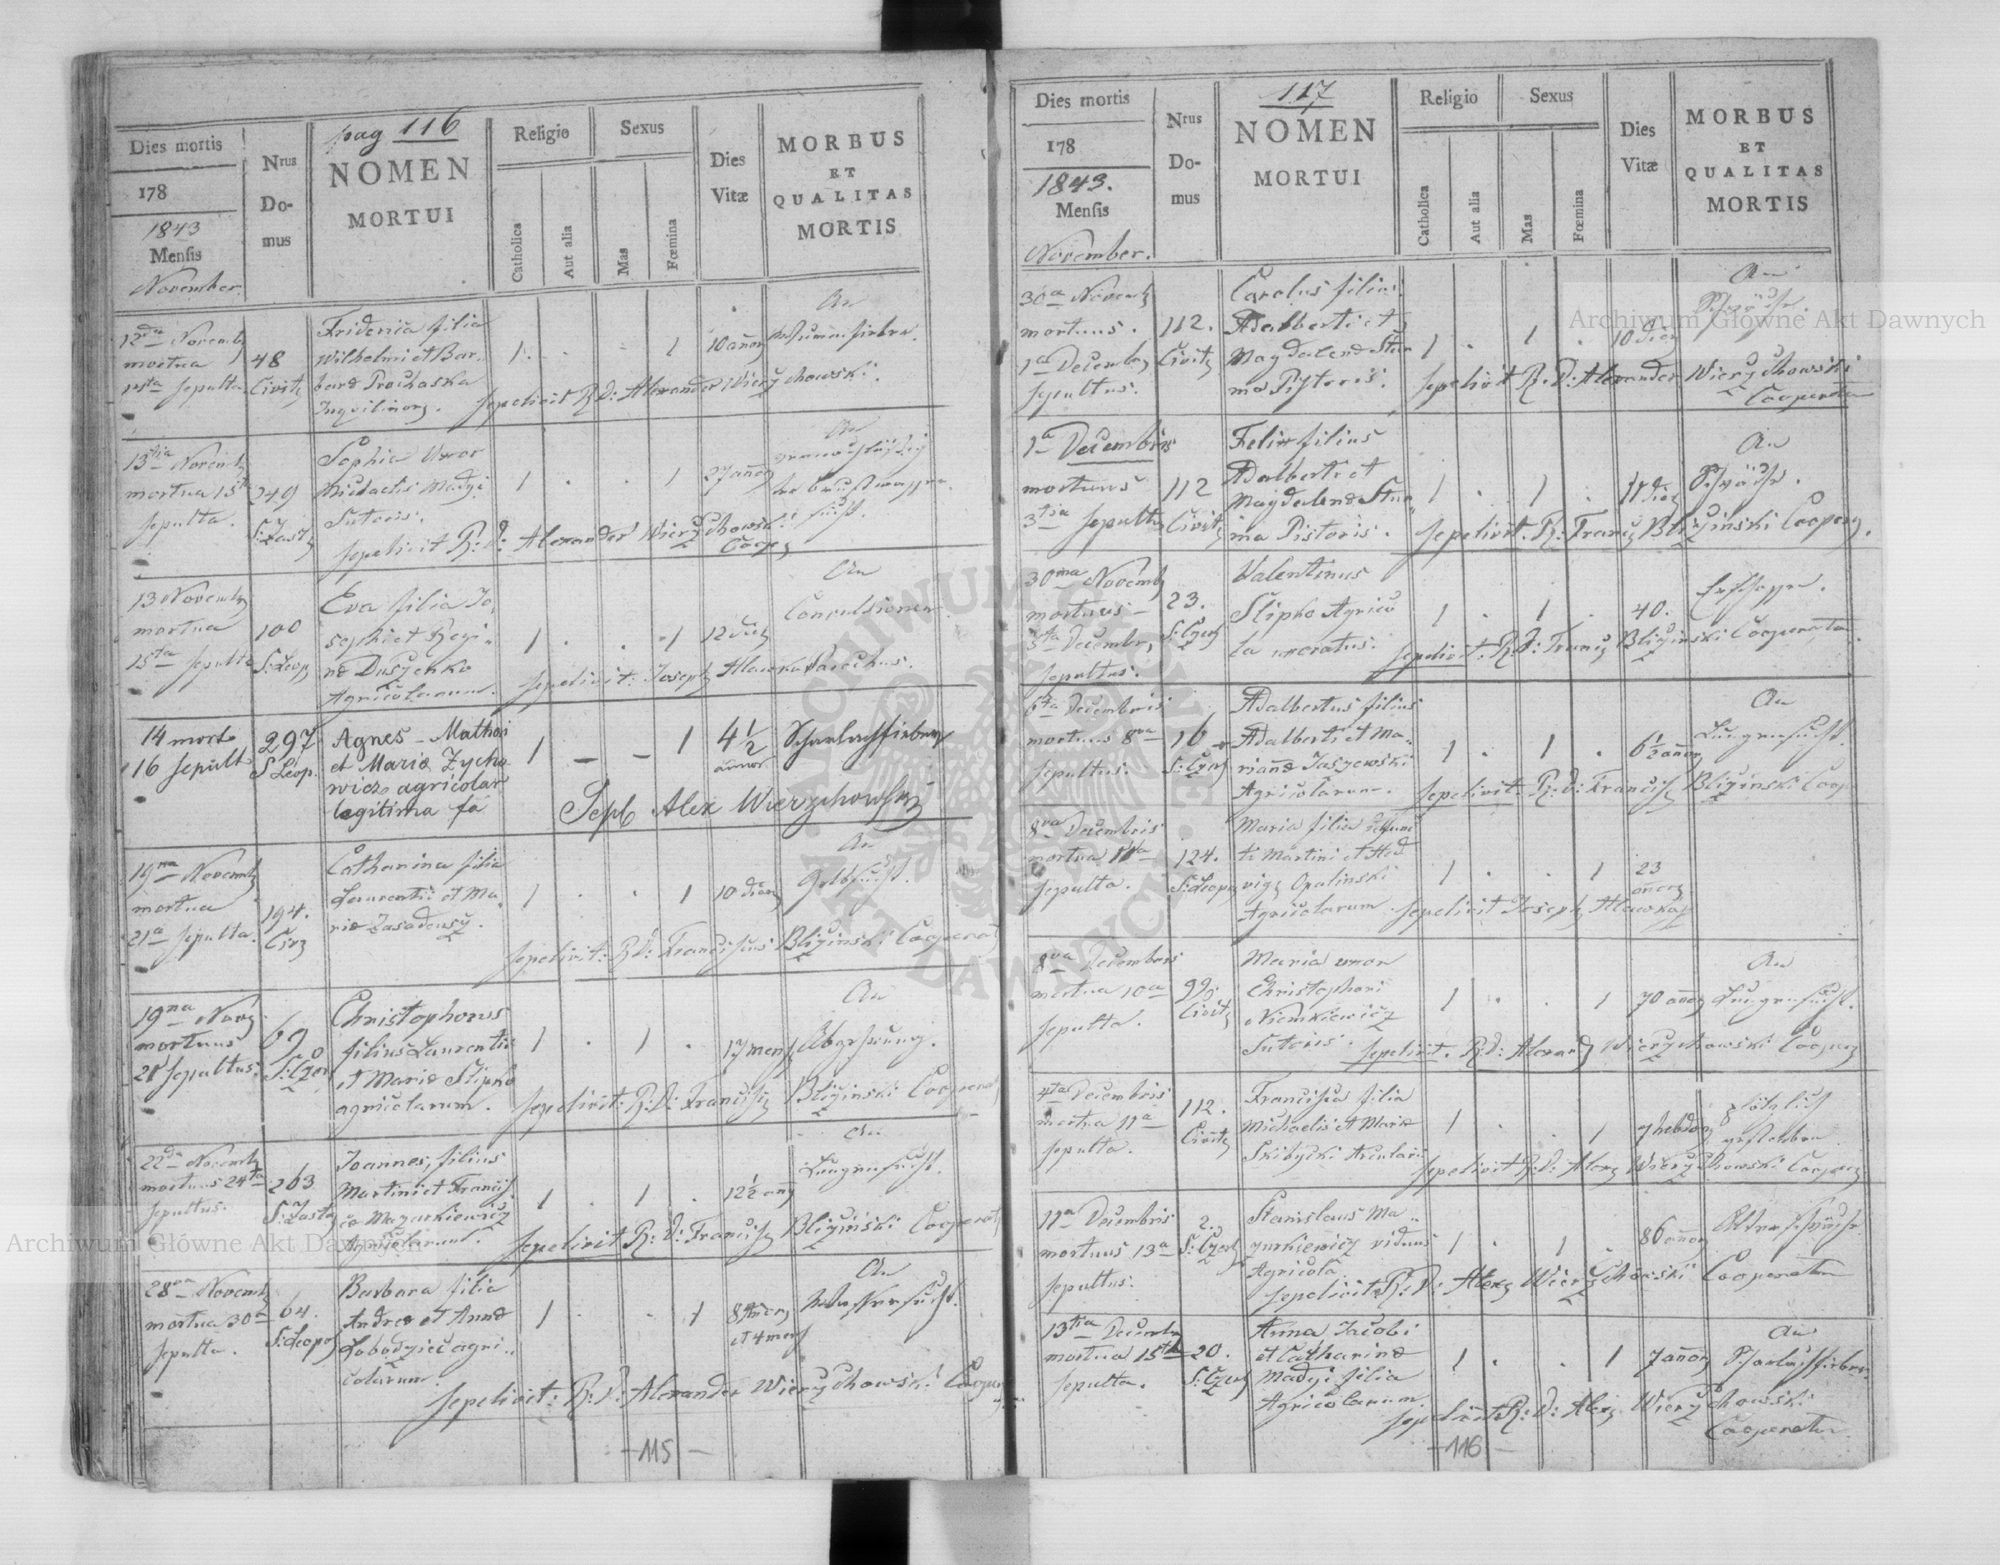 pag 116
Dies mortis
178
1843
Mensis
November.
Nrus
Do-
mus
NOMEN
MORTUI
Religio
Catholica
Aut alia
Sexus
Mas
Fœmina
Dies
Vitæ
MORBUS
ET
QUALITAS
MORTIS
12da Novemb
mortua
14ta sepulta
48
Civit
Fridericia filia
Wilhelmi et Bar-
bara Prochaska
Inquilinor.
1 . . 1
10 añor
An
sepelivit R: D: Alexander Wierzchowski.
13tia Novemb
mortua 15ta
sepulta.
249
S: Zast
Sophia Uxor
Michaelis Madyi
Sutoris.
1 . . 1
27 añor
An
sepelivit R: D: Alexander Wierzchowski
Cooper
13 Novemb
mortua
15ta sepulta
100
S: Leop
Eva filia Jo-
sephi et Regi-
na Duszenko
Agricolarum.
1 . . 1
12 dies
An
Convulsionen
sepelivit: Joseph Hlawka Parochus.
14 morta
16 sepult
297
S Leop.
Agnes - Mathæi
et Maria Zycho
wicz agricolar
legitima fa
1 - - 1
4 1/2
annor
Scharlachfieber
Sepl Alex Wierzchowski
19na Novemb
mortua
21a sepulta.
194.
Civ
Catharina filia
Laurentii et Ma-
ria Zasadensy.
1 . . 1
10 dier
An
Gelbsucht.
sepelivit: R: D: Franciscus Bliziński Cooperat
19na Novb
mortuus
21 sepultus.
69
S: Czer
Christophorus
filius Laurentii
et Maria Slipko
agricolarum.
1 . 1 .
17 mens
An
Abzehrung.
sepelivit: R: D: Francisc Bliziński Cooperat
22da Novemb
mortuus 24ta
sepultus.
263
S: Zasta
Joannes, filius
Martini et Francis
ca Mazurkiewicz
Agricolarum.
1 . 1 .
12 1/2 añ
An
Lungensucht.
sepelivit R: D: Francisc Bliziński Cooperat
28va Novemb
mortua 30a
sepulta.
64.
S: Leopol
Barbara filia
Andrea et Anna
Lobodzicz agri-
colarum.
1 . . 1
8 añor
et 4 mens
An
Wassersucht.
sepelivit: R: D: Alexander Wierzchowski Cooper
-115-
117
Dies mortis
178
1843.
Mensis
November.
Nrus
Do-
mus
NOMEN
MORTUI
Religio
Catholica
Aut alia
Sexus
Mas
Fœmina
Dies
Vitæ
MORBUS
ET
QUALITAS
MORTIS
30a Novemb
mortuus.
1a Decembr
sepultus.
112.
Civit
Carolus filius
Adalberti et
Magdalena Stur
ma Pistoris.
1 . 1 .
10 dier
An
Schwäche.
sepelivit R: D: Alexander Wierzchowski
Cooperator
1a Decembris
mortuus
3tia sepult
112
Civit
Felix filius
Adalberti et
Magdalena Stur-
ma Pistoris.
1 . 1 .
11 dier
An
Schwäche.
sepelivit. R: Franc Bliziński Cooper.
30ma Novemb
mortuus
3tia Decembr,
sepultus.
23.
S: Czer
Valentinus
Slipko Agrico
la uxoratus.
1 . 1 .
40.
sepelivit: R: D: Franc Bliziński Cooperator.
6ta Decembris
mortuus 8va
sepultus.
16
S: Czer
Adalbertus filius
Adalberti et Ma-
rianna Jaszewski
Agricolarum.
1 . 1 .
6 1/2 añor
An
Lungensucht.
sepelivit: R: D: Francisc Bliziński Coop
8va Decembris
mortua 11a
sepulta.
124.
S: Leopol
Maria filia
Martini et Hed
vigis Opalinski
Agricolarum
1 . . 1
23
añor
sepelivit Joseph Hlawka
8va Decembris
mortua 10a
sepulta.
Civit
Maria uxor
Christophori
Niemkiewicz
Sutoris.
1 . . 1
70 añor
An
Lungensucht.
sepelivit. R: D: Alexand Wierzchowski Cooper
mortua 11a
sepulta.
112.
Civit
Francisca filia
Michaelis et Maria
Skibycki Arcularii
1 . . 1
7 hebdom
Plötzlich
gestorben
sepelivit R: D: Alex Wierzchowski Cooper
11a Decembris
mortuus 13a
sepultus.
2.
S: Czer
Stanislaus Ma-
zurkiewicz viduus
Agricola
1 . 1 .
86 añor
Altersschwäche
sepelivit R: D: Alex Wierzchowski Cooperator
13tia Decembr
mortua 15ta
sepulta.
20.
S: Czer
Anna Jacobi
et Catharina
Madyi filia
Agricolarum.
1 . . 1
7 añor
An
Scharlachfieber
sepelivit R: D: Alex Wierzchowski
Cooperator
-116-
Archiwum Główne Akt Dawnych
Archiwum Główne Akt Dawnych
ARCHIWUM GŁÓWNE AKT DAWNYCH